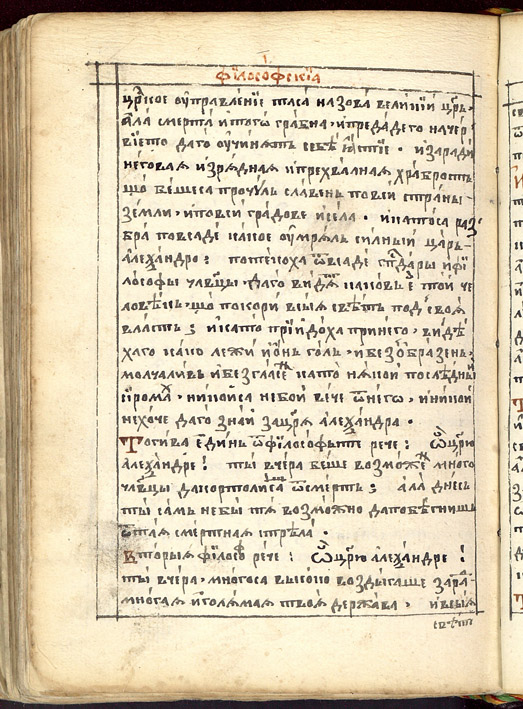 філософскїа
црⷭ҇кое оуправленїе та са назова великїй црь,
ала смерть и того грабна, и предаде го на чер
вїето да го оучинятъ себѣ ꙗстїе. и заради
негова изрядная и прехвалная храбрость
що бѣше са прочулъ славенъ по вси страны
земли, и по вси градове и села. и ката са раз
бра по всаде какво оумрялъ силный царь
алеѯандро: потекоха ѿ всаде сподары и фи
лософы члвцы, да го видятъ каковъ е той че
ловѣкъ, що покори всыя свѣтъ подъ своя
власть; и като прїидоха при него, видѣ
ха го како лежи и онъ голъ, и безобразенъ,
молчаливъ и безгласенъ като нѣкой послѣдный
сиромахъ, никой са небои вече ѿ него, и никой
нехоче да го знай за цря алеѯандра.
Тогива единъ ѿ філософыте рече: Ѽ црю
алеѯандре! ты вчера беше возможенъ много
члвцы да кортолиса ѿ смерть; ала днесь
ты самъ не бы тя возможно да побѣгнишъ
ѿ тая смертная стрѣла.
Вторыя філософъ рече: Ѽ црю алеѯандре!
ты вчера, много са високо воздыгаше заради
многая и голямая твоя держава, и всыя
свѣтъ